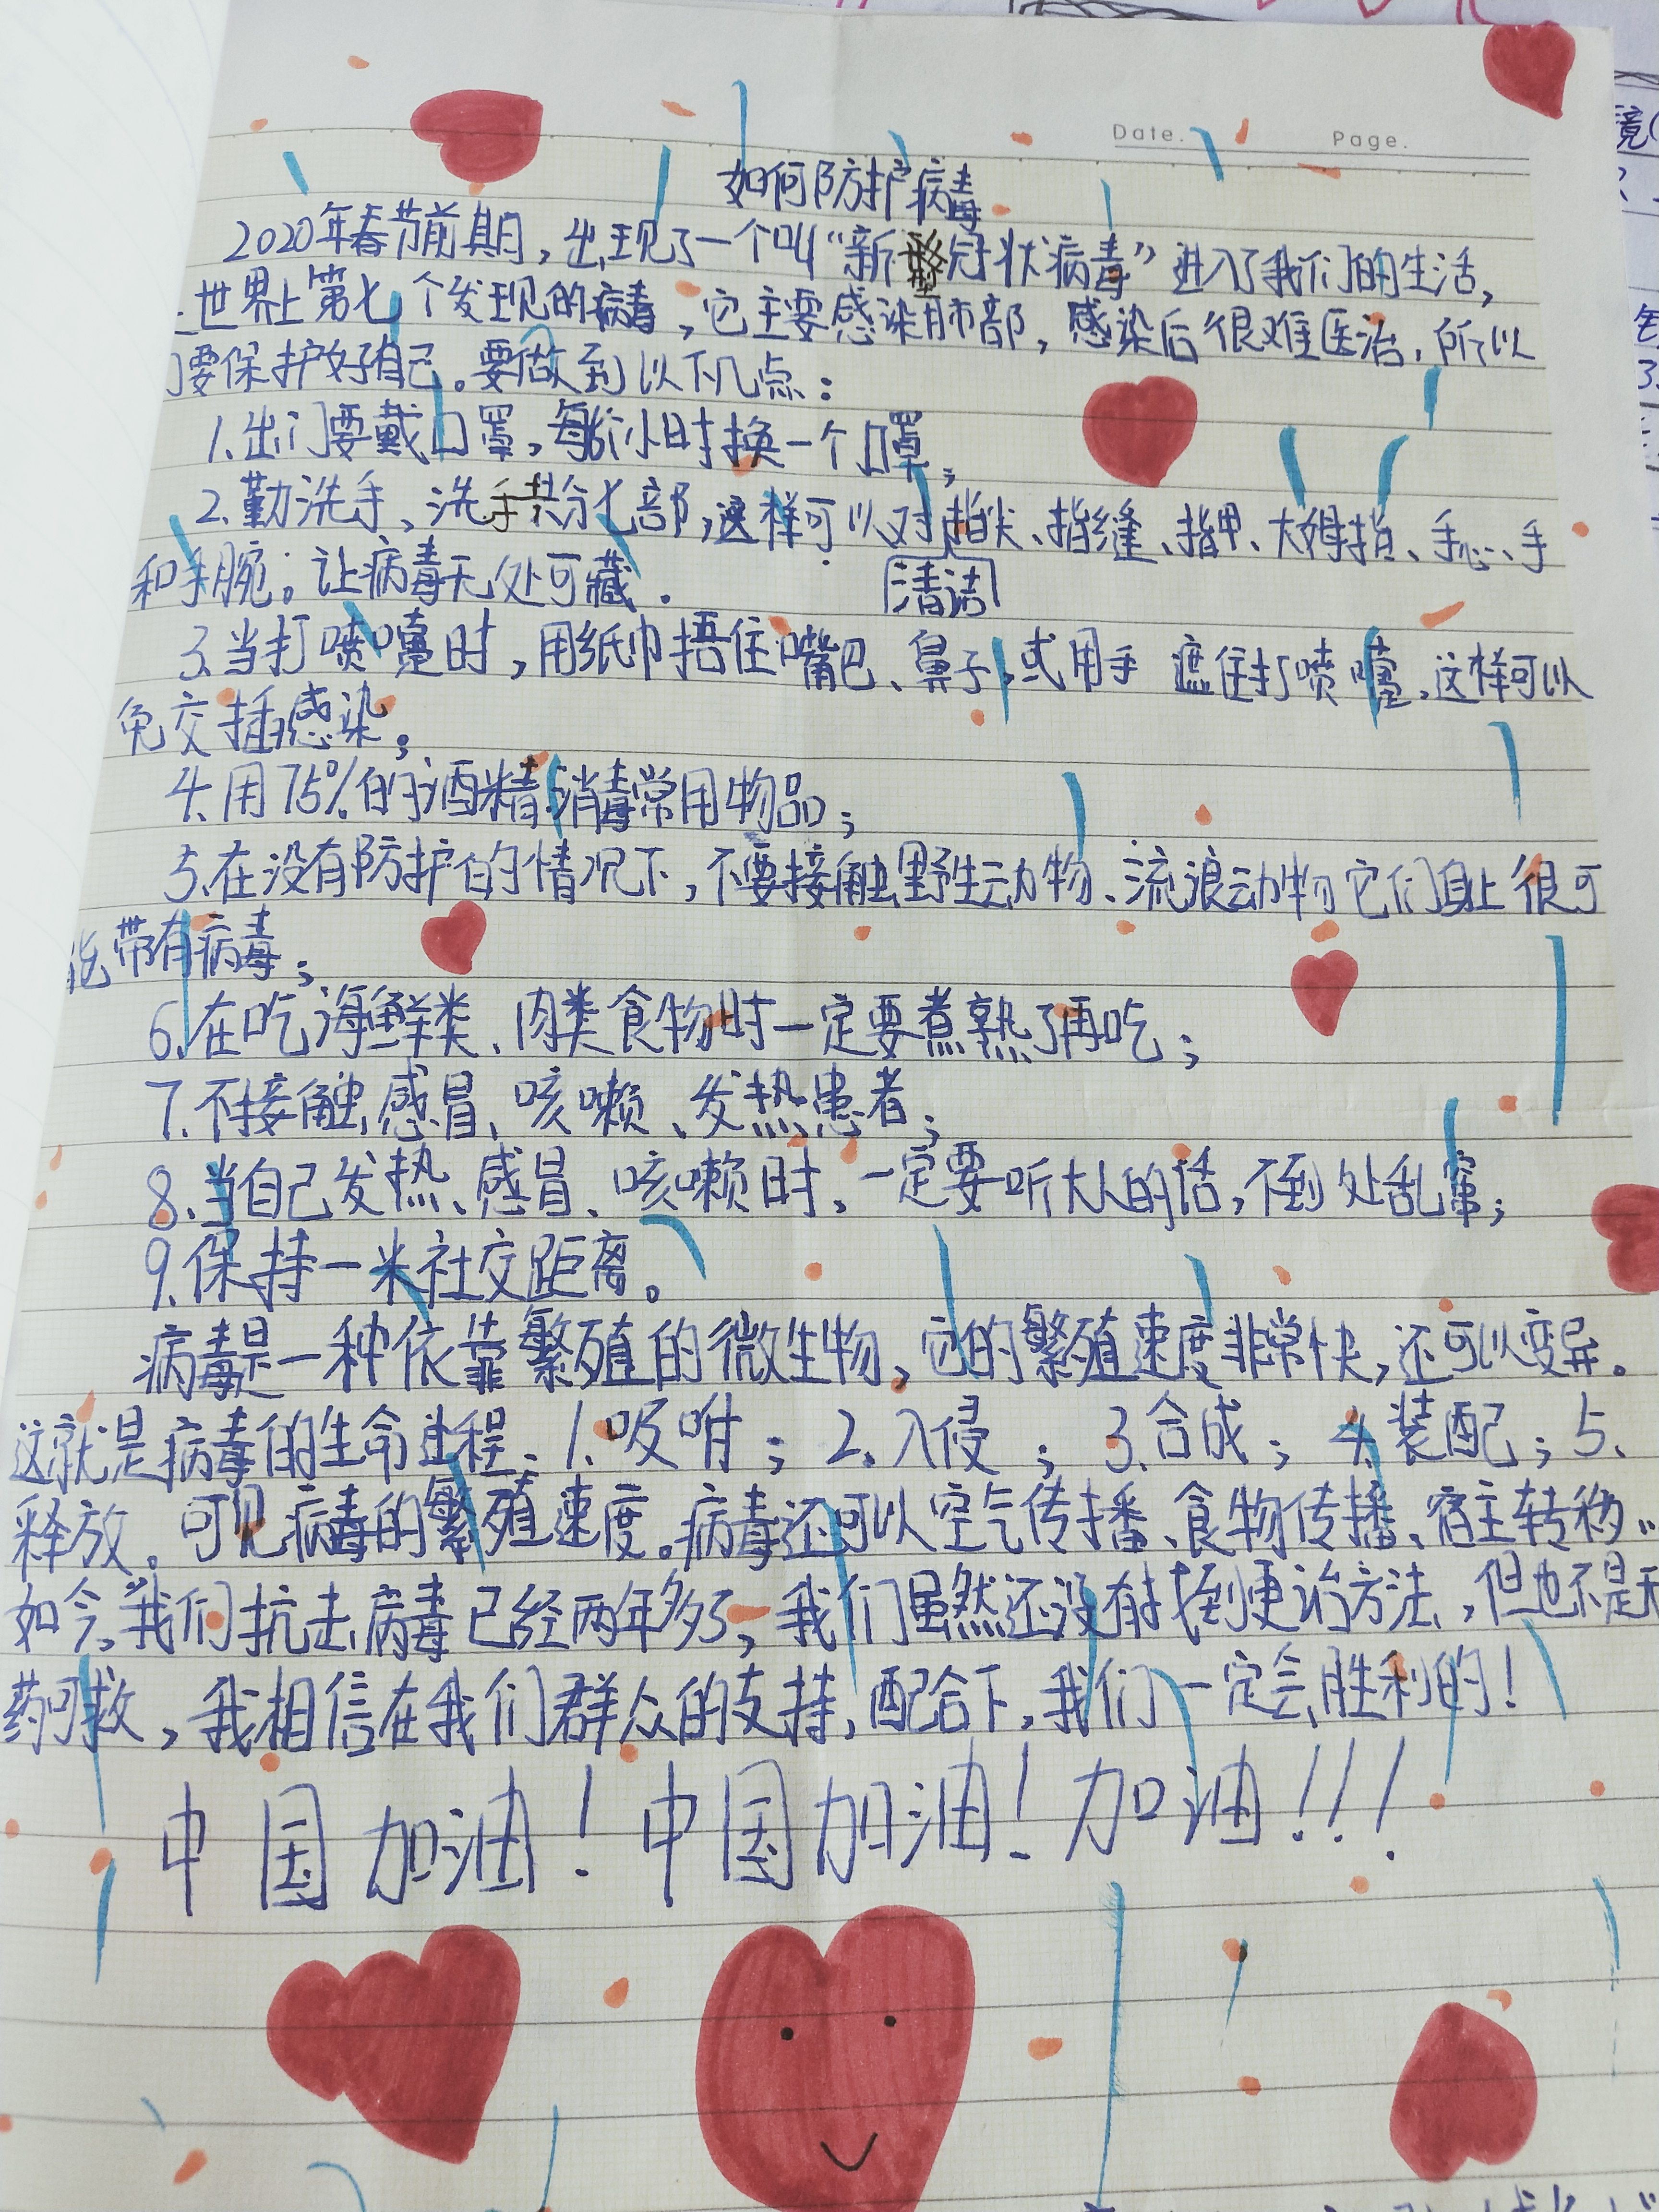 Date.
Page.
如何防护病毒
2020年春节前期，出现了一个叫“新型冠状病毒”进入了我们的生活，
世界上第七个发现的病毒，它主要感染肺部，感染后很难医治，所以
们要保护好自己。要做到以下几点：
1.出门要戴口罩，每小时换一个口罩；
2.勤洗手、洗手共分七部，这样可以对指尖、指缝、指甲、大姆指、手心、手
和手腕。让病毒无处可藏．
清洁
3.当打喷嚏时，用纸巾捂住嘴巴、鼻子，或用手 遮住打喷嚏，这样可以
免交插感染；
4.用75%的酒精消毒常用物品；
5.在没有防护的情况下，不要接触野生动物、流浪动物它们身上很可
能带有病毒；
6.在吃海鲜类、肉类食物时一定要煮熟了再吃；
7.不接触感冒、咳嗽、发热患者；
8.当自己发热、感冒、咳嗽时，一定要听大人的话，不到处乱窜；
9.保持一米社交距离。
病毒是一种依靠繁殖的微生物，它的繁殖速度非常快，还可以变异。
这就是病毒的生命进程：1.吸咐；2.入侵；3.合成；4.装配；5.
释放。可见病毒的繁殖速度。病毒还可以空气传播、食物传播、宿主转移…
如今，我们抗击病毒已经两年多了，我们虽然还没有找到更治方法，但也不是无
药可救，我相信在我们群众的支持，配合下，我们一定会胜利的！
中国加油！中国加油！加油！！！